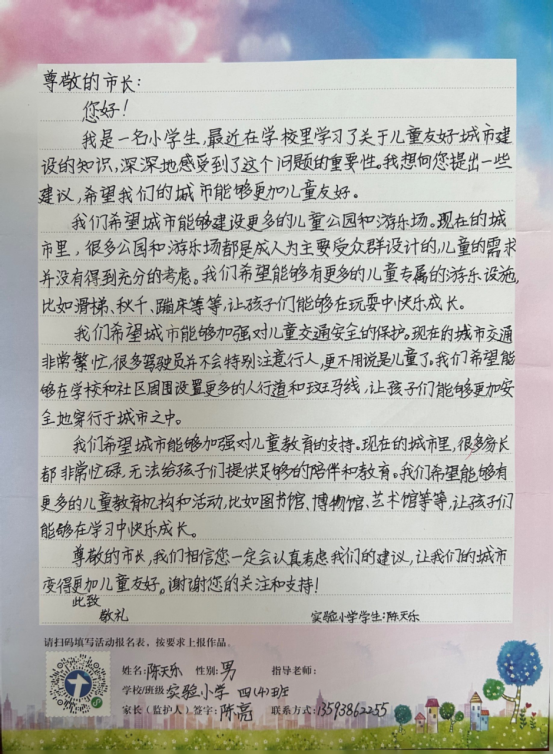 尊敬的市长:
您好!
我是一名小学生,最近在学校里学习了关于儿童友好城市建
设的知识,深深地感受到了这个问题的重要性。我想向您提出一些
建议,希望我们的城市能够更加儿童友好。
我们希望城市能够建设更多的儿童公园和游乐场。现在的城
市里,很多公园和游乐场都是成人为主要受众群设计的,儿童的需求
并没有得到充分的考虑。我们希望能够有更多的儿童专属的游乐设施,
比如滑梯、秋千、蹦床等等,让孩子们能够在玩耍中快乐成长。
我们希望城市能够加强对儿童交通安全的保护。现在的城市交通
非常繁忙,很多驾驶员并不会特别注意行人,更不用说是儿童了。我们希望能
够在学校和社区周围设置更多的人行道和斑马线,让孩子们能够更加安
全地穿行于城市之中。
我们希望城市能够加强对儿童教育的支持。现在的城市里,很多家长
都非常忙碌,无法给孩子们提供足够的陪伴和教育。我们希望能够有
更多的儿童教育机构和活动,比如图书馆、博物馆、艺术馆等等,让孩子们
能够在学习中快乐成长。
尊敬的市长,我们相信您一定会认真考虑我们的建议,让我们的城市
变得更加儿童友好。谢谢您的关注和支持!
此致
敬礼 实验小学学生:陈天乐
请扫码填写活动报名表,按要求上报作品。
姓名:陈天乐 性别:男 指导老师:
学校/班级 实验小学 四(4)班
家长(监护人)签字:陈亮 联系方式:13593862255